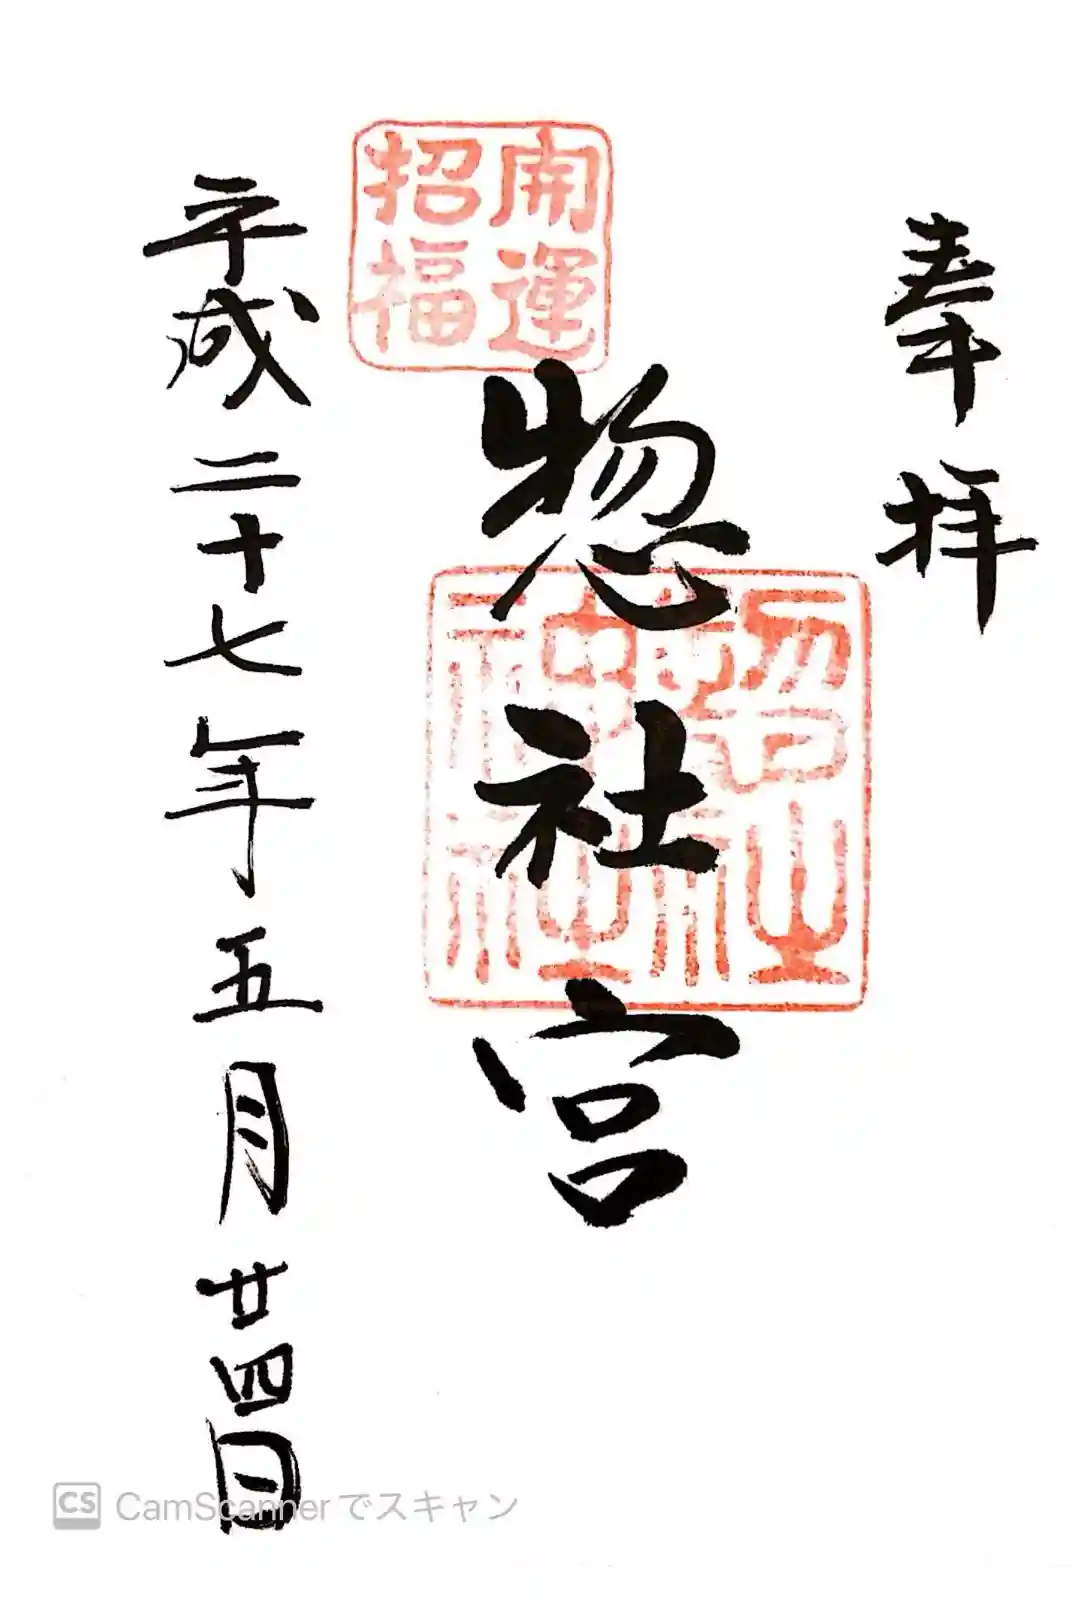 奉拝
開運
招福
惣社宮
惣社
神社
平成二十七年五月廿四日
CS CamScannerでスキャン